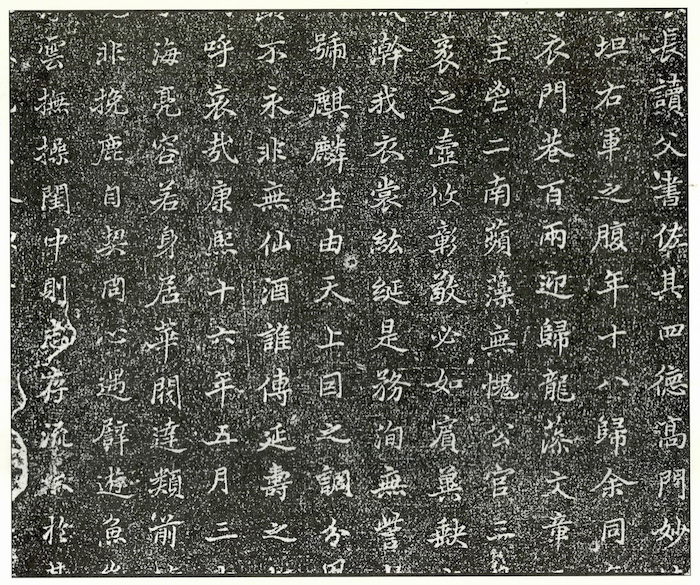 長讀父書佐其四德高門妙
坦右軍之腹年十八歸余同
衣門巷百兩迎歸龍藻文章
主鬯二南蘋藻無愧公官三
袤之壼攸彰敬必如賓冀缺
澣我衣裳紘綖是務洵無訾
號麒麟生由天上因之調分
不永非無仙酒誰傳延壽之
呼哀哉康熙十六年五月三
海亮容若身居華閥達類前
非挽鹿自契同心遇譬遊魚
雲撫操閨中則志存流於